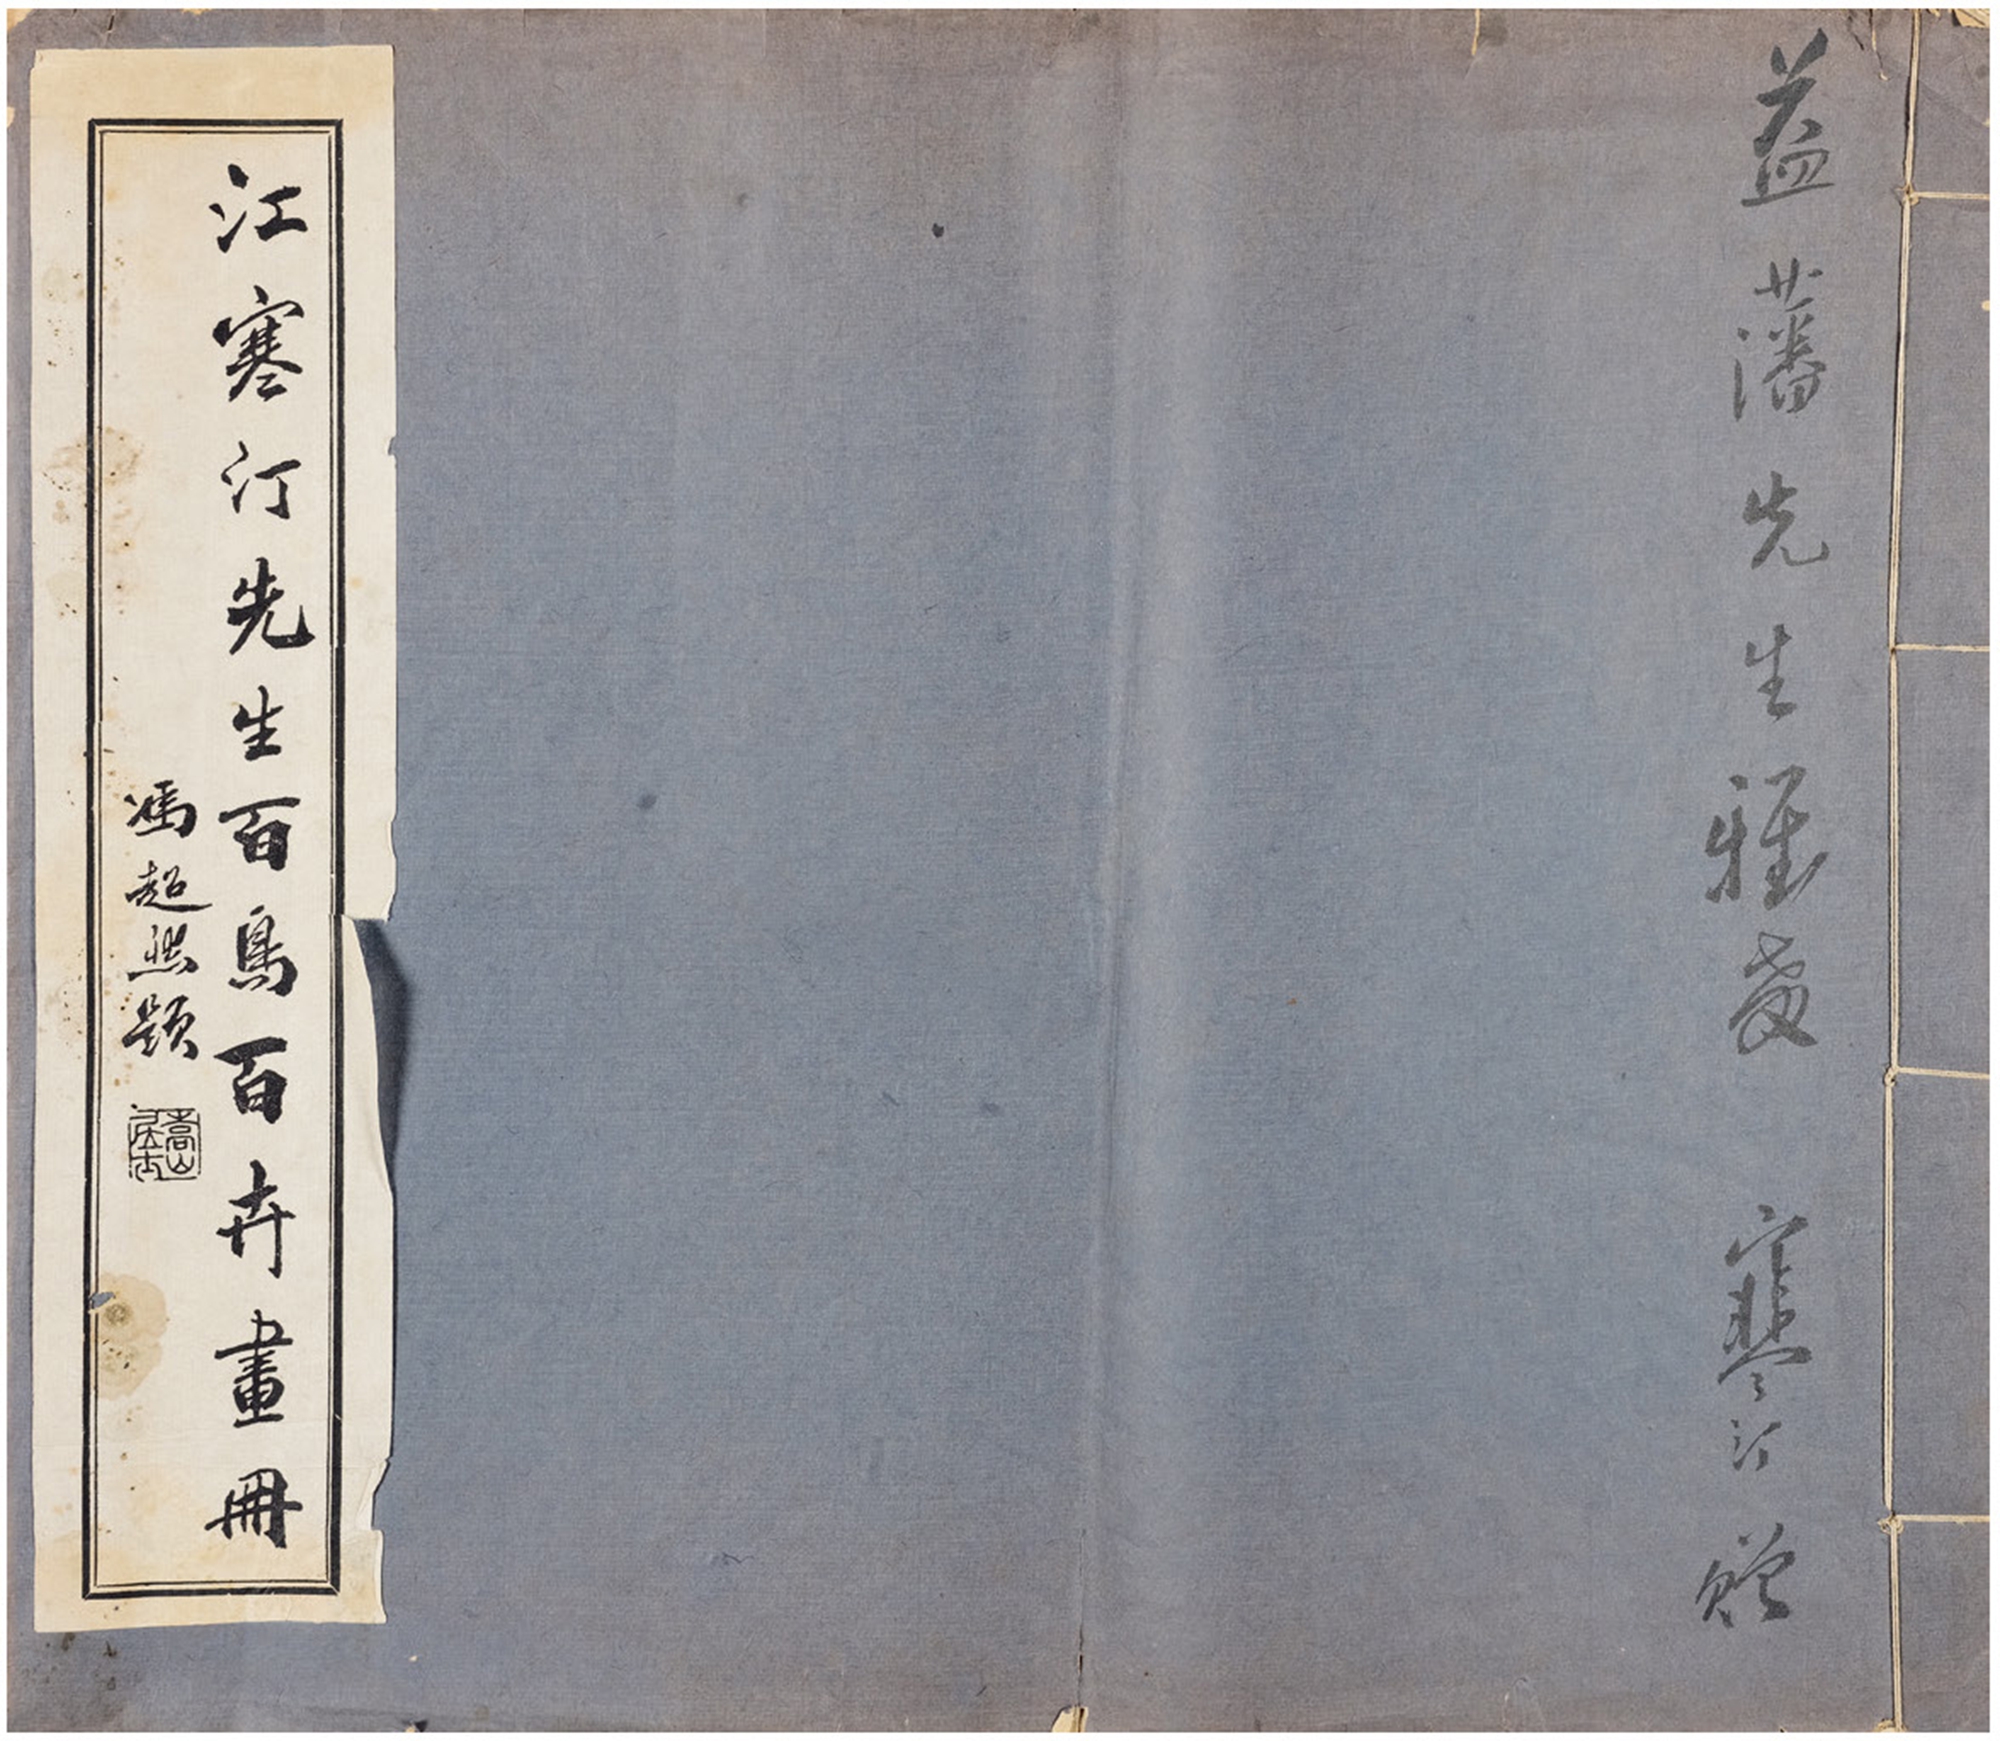 益藩先生雅教 寒汀贈
江寒汀先生百鳥百卉畫冊
馮超然題
嵩山居士